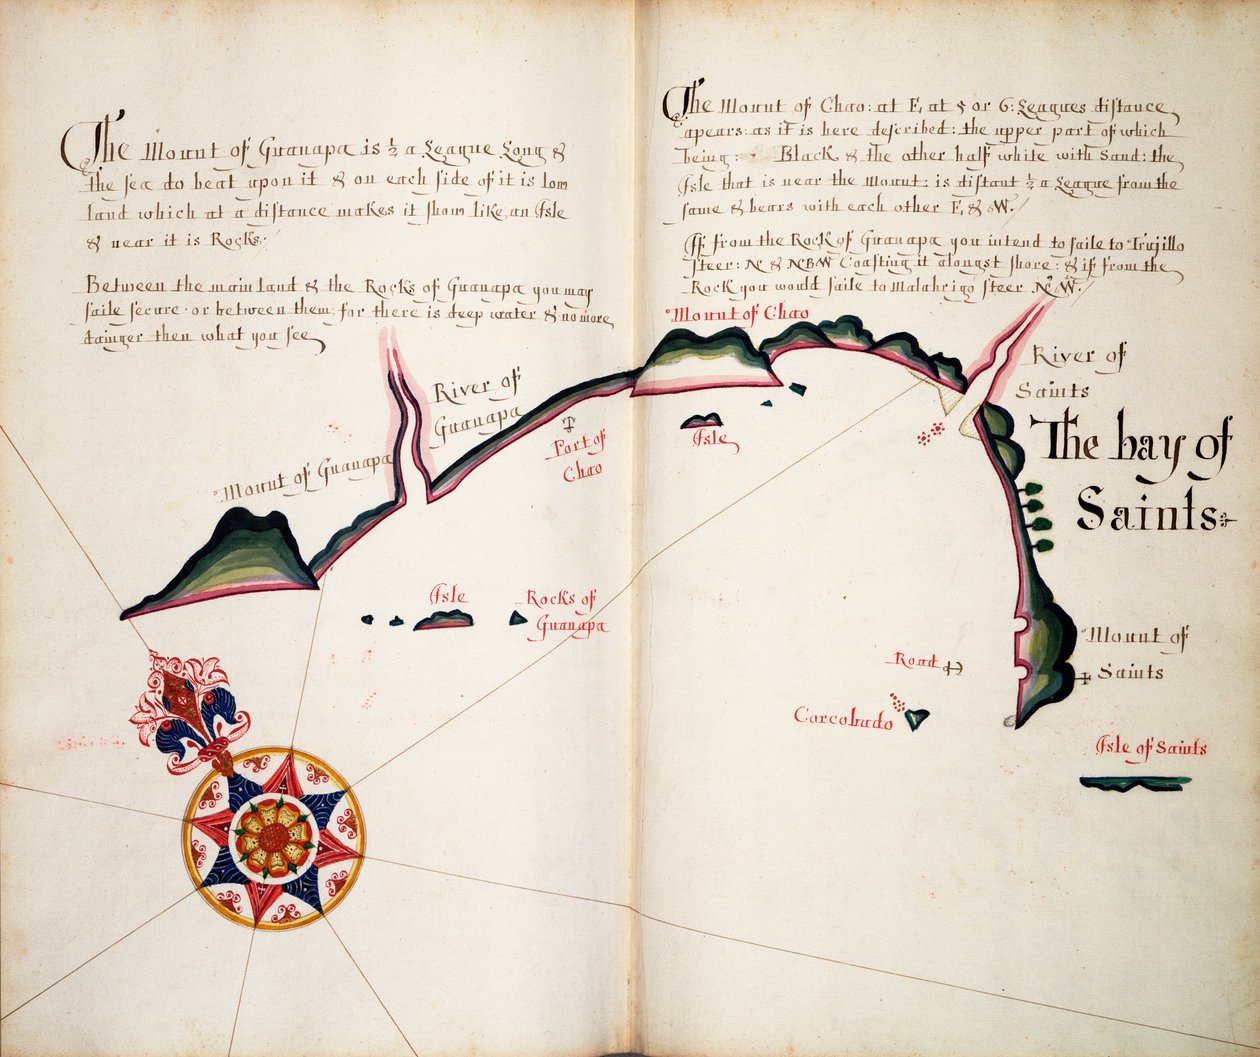 The Mount of Guanapa is ½ a League Long &
the sea do beat upon it & on each side of it is low
land which at a distance makes it show like an Isle
& near it is Rocks.
Between the main land & the Rocks of Guanapa you may
saile secure or between them: for there is deep water & no more
dainger then what you see
The Mount of Chao: at E, at 5 or 6: Leagues distance
apears: as it is here described: the upper part of which
being: Black & the other half white with Sand: the
Isle that is near the Mount: is distant ½ a League from the
same & bears with each other E, & W.
If from the Rock of Guanapa you intend to saile to Trujillo
steer: N & NBW Coasting it alongst shore: & if from the
Rock you would saile to Malabrigo steer N W.
Mount of Chao
River of
Guanapa
River of
Saints
Mount of Guanapa
Port of
Chao
Isle
The bay of
Saints
Isle
Rocks of
Guanapa
Mount of
Saints
Road
Corcobado
Isle of Saints